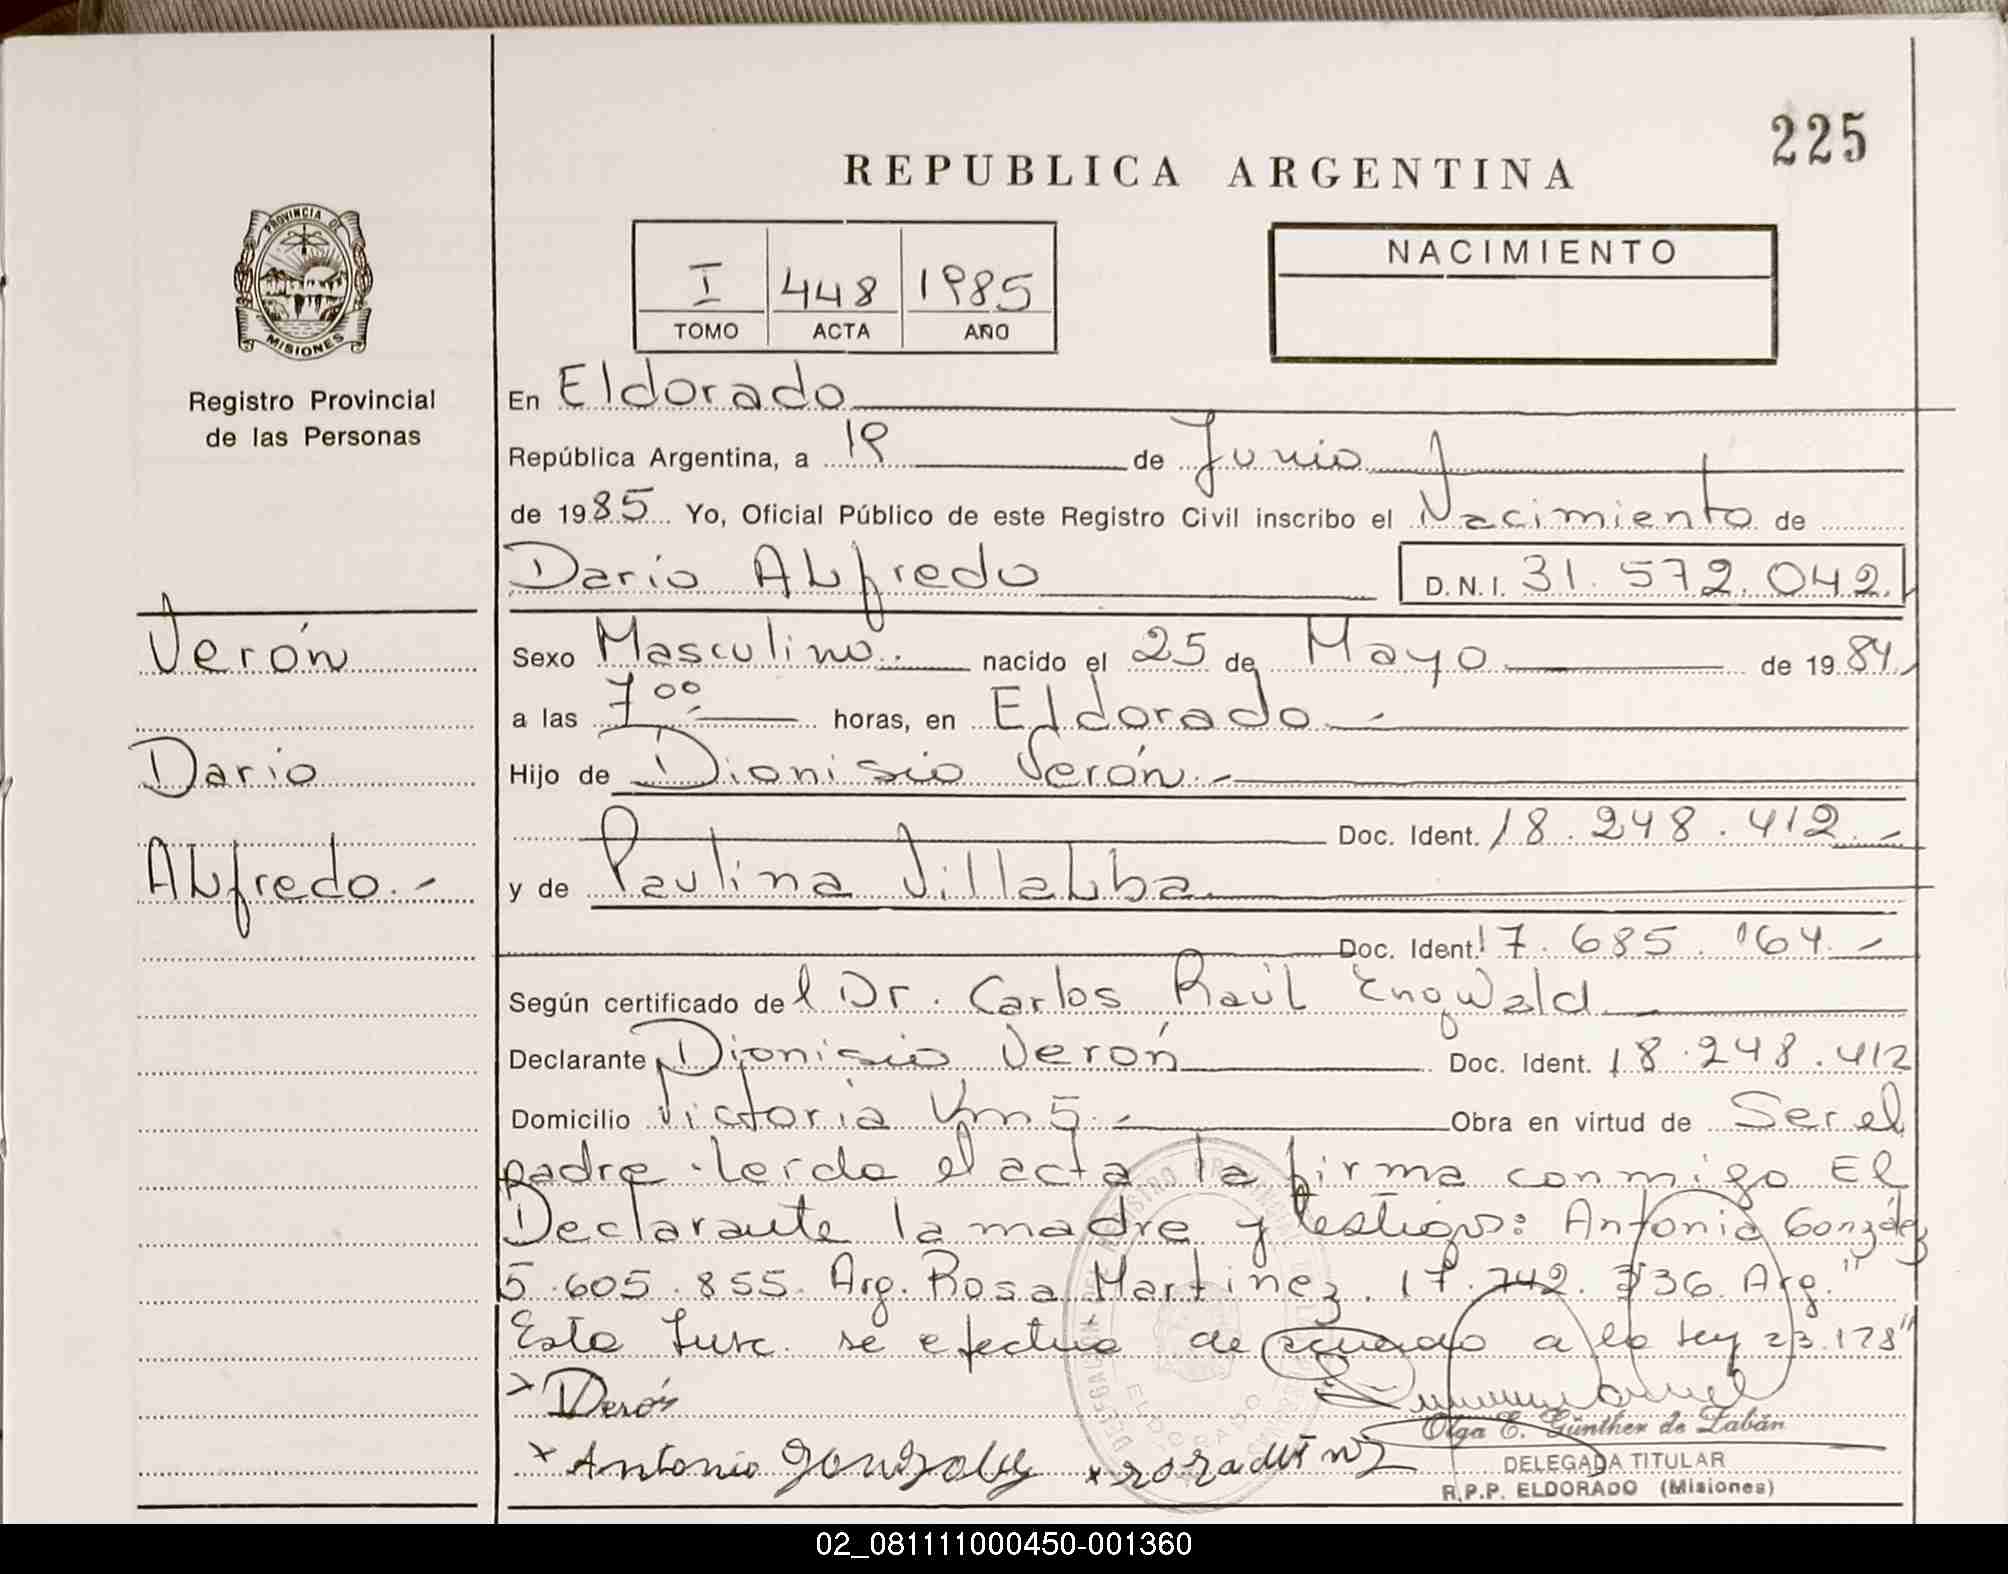 225
REPUBLICA ARGENTINA
PROVINCIA DE
MISIONES
Registro Provincial
de las Personas
I 448 1985
TOMO ACTA AÑO
NACIMIENTO
En Eldorado
República Argentina, a 19 de Junio
de 1985 Yo, Oficial Público de este Registro Civil inscribo el Nacimiento de
Dario Alfredo D.N.I. 31.572.042.
Verón
Dario
Alfredo.-
Sexo Masculino.- nacido el 25 de Mayo de 1984
a las 7 00 horas, en Eldorado.-
Hijo de Dionisio Verón.-
Doc. Ident. 18.248.412.-
y de Paulina Villalba
Doc. Ident. 17.685.164.-
Según certificado del Dr. Carlos Raúl
Declarante Dionisio Verón Doc. Ident. 18.248.412
Domicilio Victoria Km 5.- Obra en virtud de Ser el
padre. leida el acta la firma conmigo El
Declarante la madre y testigos: Antonio González
5.605.855. Arg. Rosa Martinez. 17.742.336. Arg."
Esta Insc. se efectúa de acuerdo a la ley 23.128"
x Verón
Olga E. Günther de Zabán
x Antonio Gonzalez x
DELEGADA TITULAR
R.P.P. ELDORADO (Misiones)
02_081111000450-001360